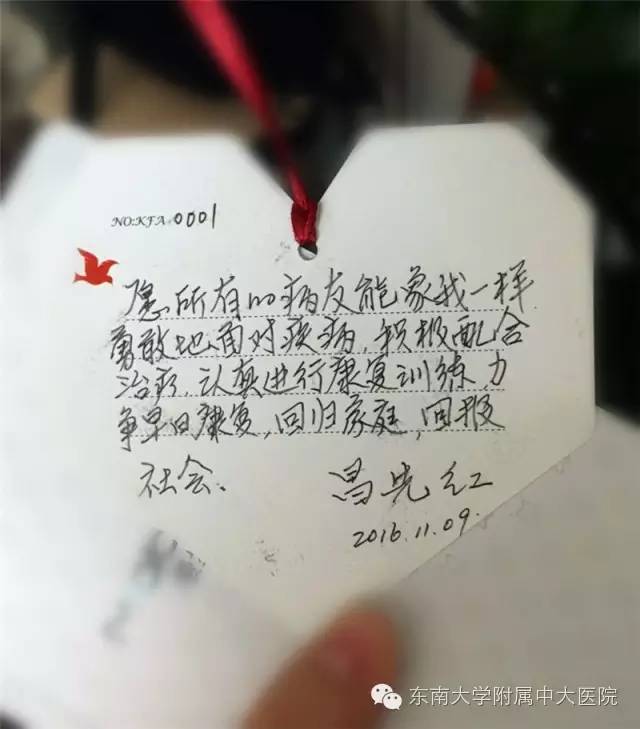 NO:KFA 0001
愿所有的病友能象我一样
勇敢地面对疾病,积极配合
治疗,认真进行康复训练,力
争早日康复,回归家庭,回报
社会、
昌先红
2016.11.09.
东南大学附属中大医院